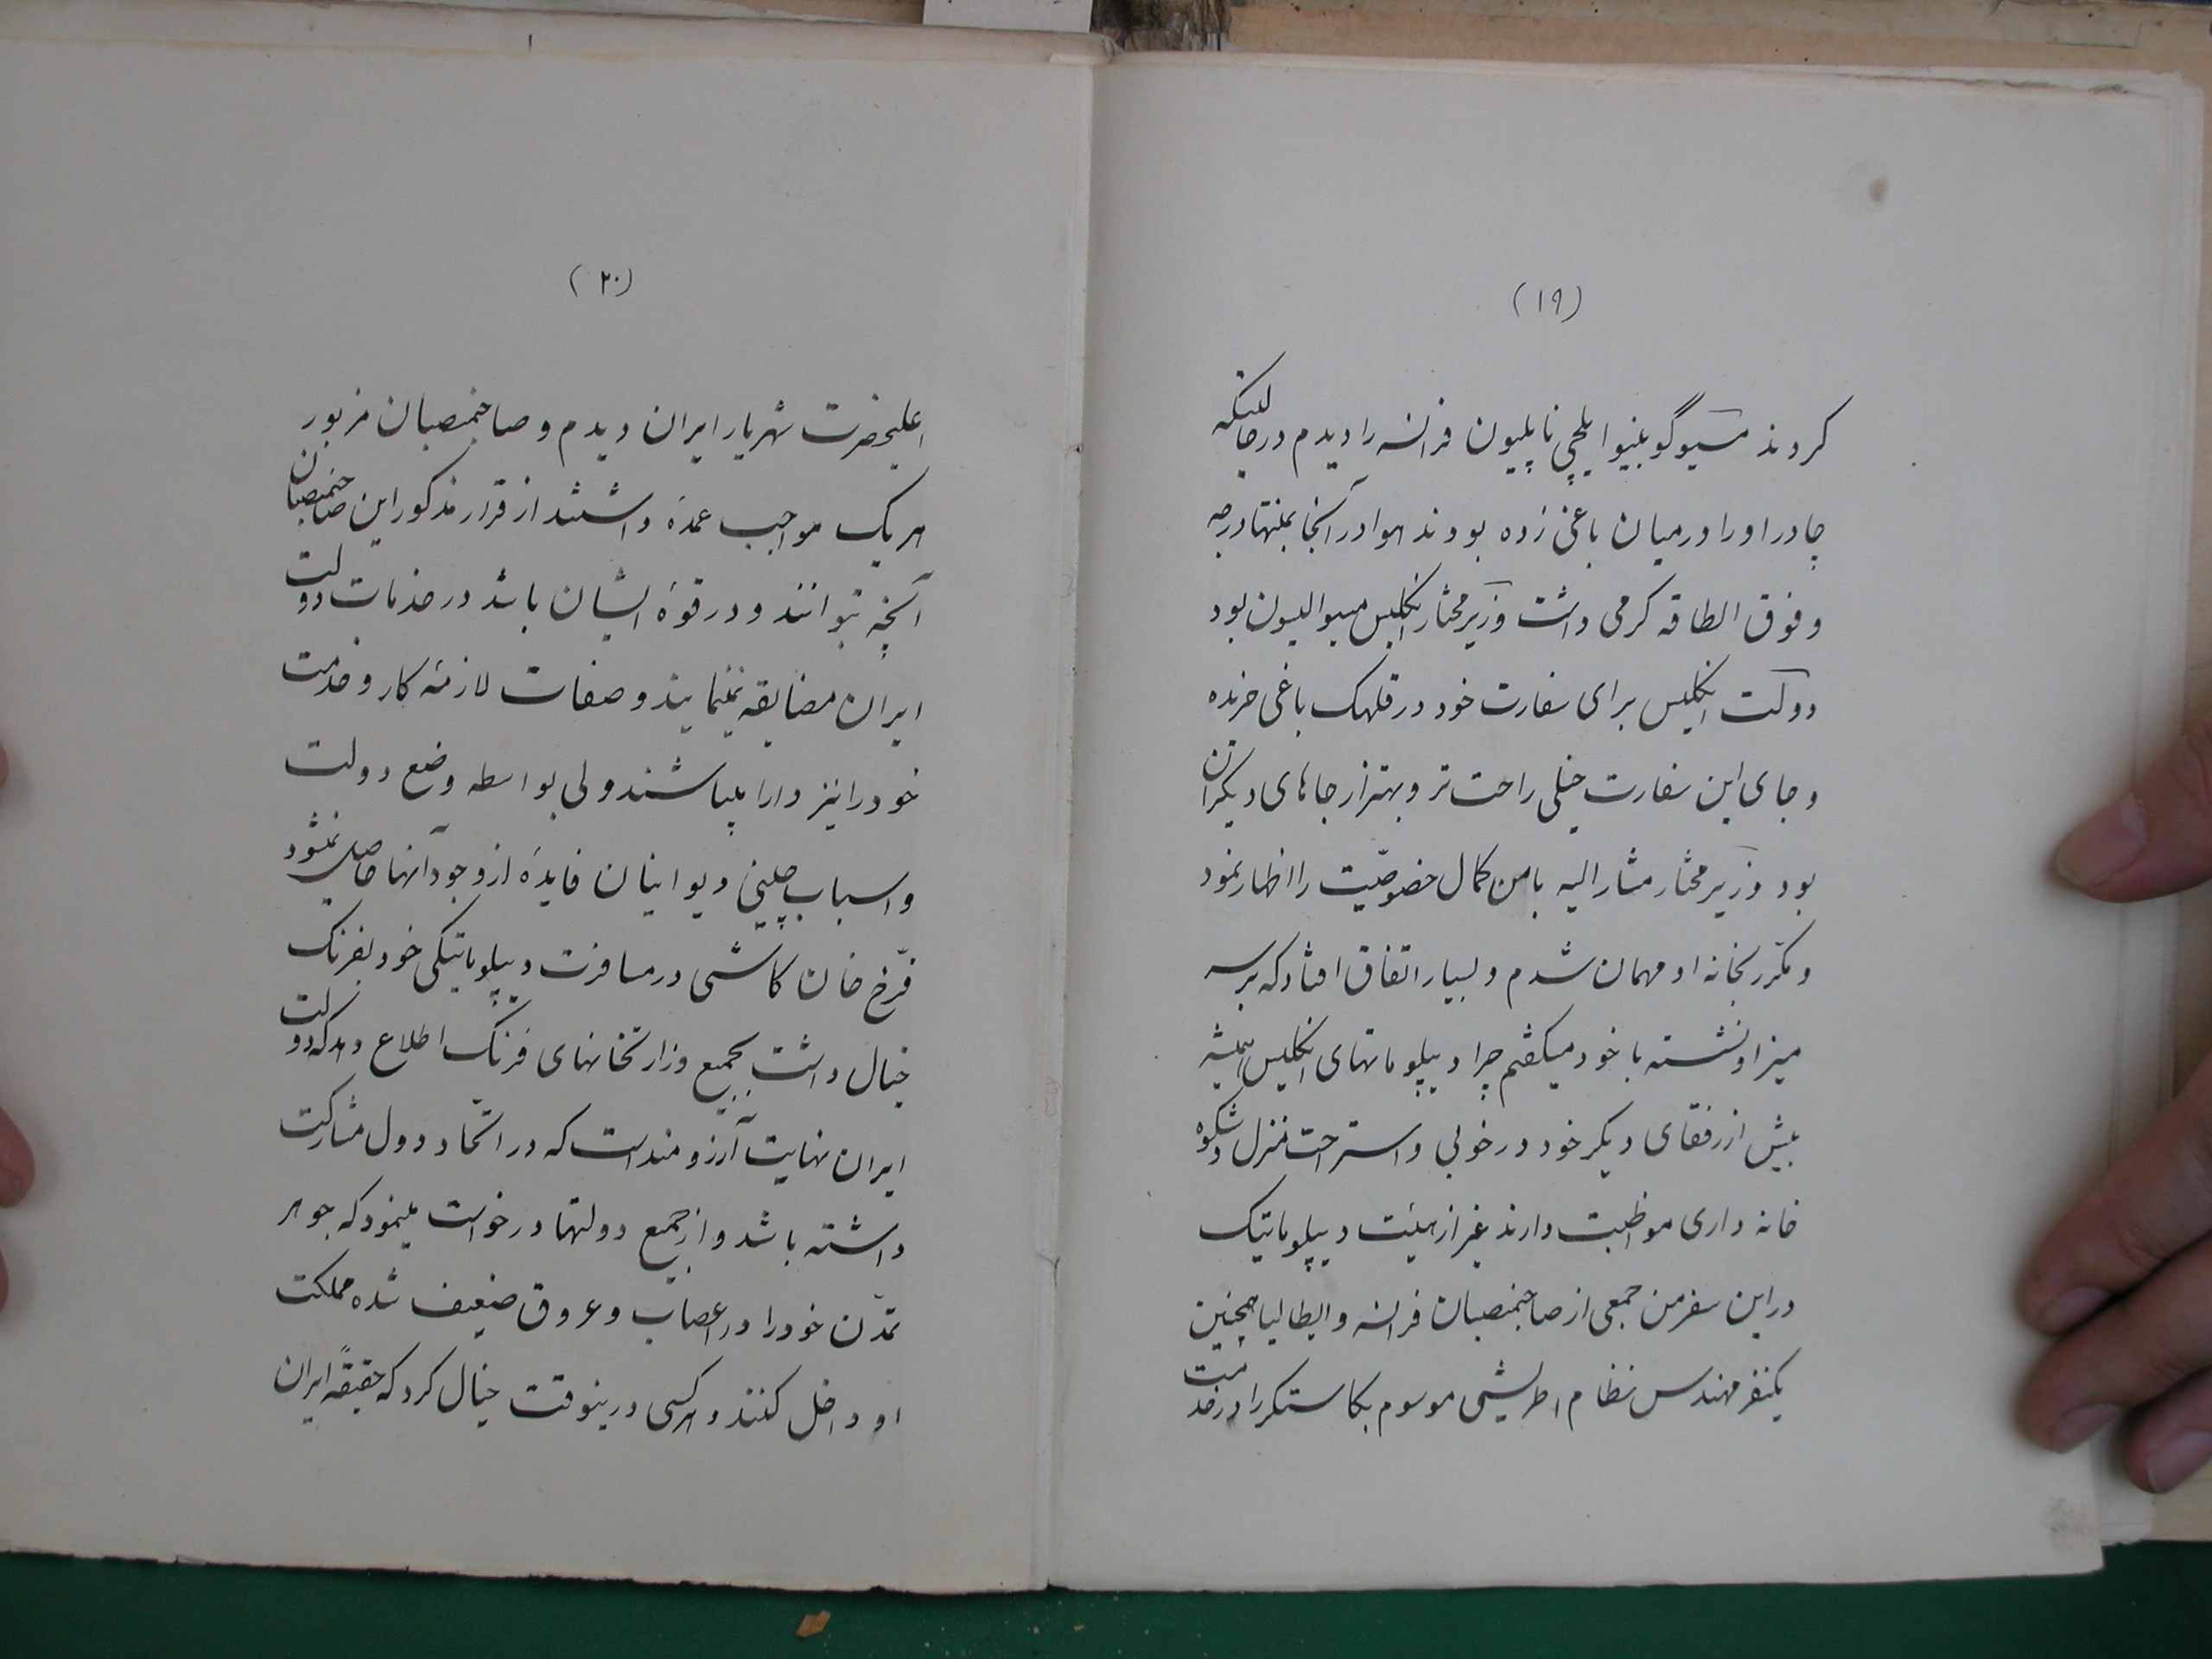 (۱۹)
کردند مسیو گوبنیو ایلچی ناپلیون فرانسه را دیدم در حالتیکه
چادر او را در میان باغی زده بودند هوا در آنجا بمنتها درجه
و فوق الطاقه گرمی داشت وزیر مختار انگلیس مسیو الیسون بود
دولت انگلیس برای سفارت خود در قلهک باغی خریده
و جای این سفارت خیلی راحت تر و بهتر از جاهای دیگران
بود وزیر مختار مشار الیه با من کمال خصوصیّت را اظهار نمود
و مکرّر بخانه او مهمان شدم و بسیار اتفاق افتاد که بر سر
میز او نشسته با خود میگفتم چرا دیپلوماتهای انگلیس همیشه
بیش از رفقای دیگر خود در خوبی و استراحت منزل و شکوه
خانه داری مواظبت دارند غیر از هیئت دیپلوماتیک
در این سفر من جمعی از صاحبمنصبان فرانسه و ایطالیا همچنین
یکنفر مهندس نظام اطریشی موسوم بکاستکر را در خدمت
(۲۰)
اعلیحضرت شهریار ایران دیدم و صاحبمنصبان مزبور
هر یک مواجب عمدهٔ داشتند از قرار مذکور این صاحبمنصبان
آنچه بتوانند و در قوهٔ ایشان باشد در خدمات دولت
ایران مضایقه نمینمایند و صفات لازمهٔ کار و خدمت
خود را نیز دارا میباشند ولی بواسطه وضع دولت
و اسباب چینی دیوانیان فایدهٔ از وجود آنها حاصل نمیشود
فرّخ خان کاشی در مسافرت دیپلوماتیکی خود بفرنگ
خیال داشت بجمیع وزارتخانهای فرنگ اطلاع دهد که دولت
ایران نهایت آرزومند است که در اتّحاد دول مشارکت
داشته باشد و از جمیع دولتها درخواست مینمود که جوهر
تمدّن خود را در اعصاب و عروق ضعیف شده مملکت
او داخل کنند و هر کسی درینوقت خیال کرد که حقیقةً ایران